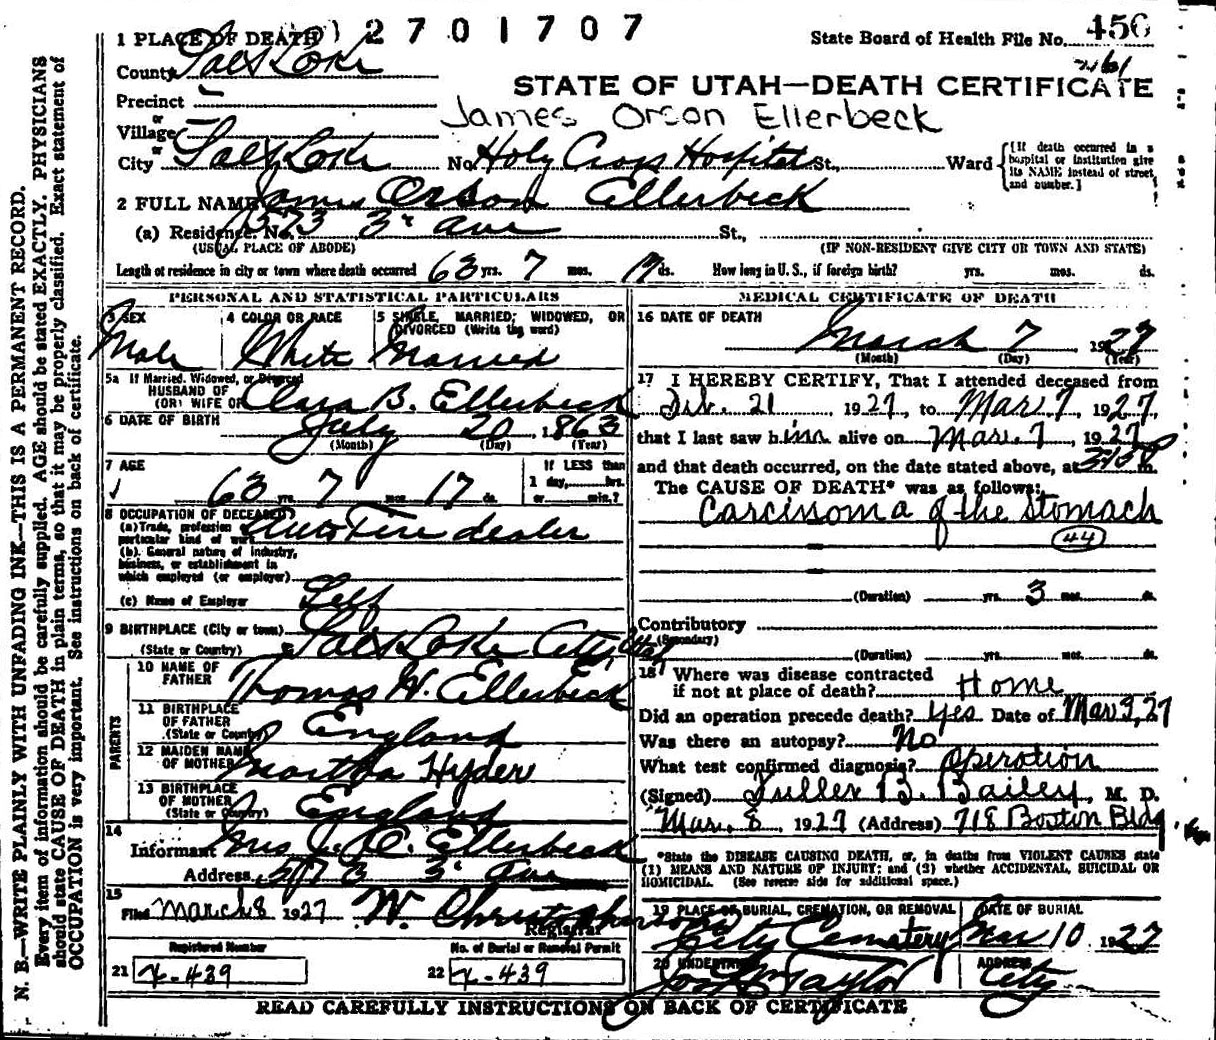 N. B.—WRITE PLAINLY WITH UNFADING INK—THIS IS A PERMANENT RECORD.
Every item of information should be carefully supplied. AGE should be stated EXACTLY. PHYSICIANS
should state CAUSE OF DEATH in plain terms, so that it may be properly classified. Exact statement of
OCCUPATION is very important. See instructions on back of certificate.
1 PLACE OF DEATH 2701707
State Board of Health File No. 456
County Salt Lake
STATE OF UTAH—DEATH CERTIFICATE
Precinct
James Orson Ellerbeck
or
Village
or
City Salt Lake No. Holy Cross Hospital St., Ward
[If death occurred in a
hospital or institution give
its NAME instead of street
and number.]
2 FULL NAME James Orson Ellerbeck
(a) Residence. No. 573 3r ave St.,
(USUAL PLACE OF ABODE) (IF NON-RESIDENT GIVE CITY OR TOWN AND STATE)
Length of residence in city or town where death occurred 63 yrs. 7 mos. 17 ds. How long in U. S., if foreign birth? yrs. mos. ds.
PERSONAL AND STATISTICAL PARTICULARS
3 SEX 4 COLOR OR RACE 5 SINGLE, MARRIED, WIDOWED, OR
DIVORCED (Write the word)
Male White Married
5a If Married, Widowed, or Divorced
HUSBAND OF
(OR) WIFE OF Clara B. Ellerbeck
6 DATE OF BIRTH July 20, 1863
(Month) (Day) (Year)
7 AGE If LESS than
1 day, hrs.
63 yrs. 7 mos. 17 ds. or min.?
8 OCCUPATION OF DECEASED
(a) Trade, profession or
particular kind of work Auto Tire dealer
(b) General nature of industry,
business, or establishment in
which employed (or employer)
(c) Name of Employer Self
9 BIRTHPLACE (City or town) Salt Lake City Utah
(State or Country)
PARENTS
10 NAME OF
FATHER Thomas W. Ellerbeck
11 BIRTHPLACE
OF FATHER
(State or Country) England
12 MAIDEN NAME
OF MOTHER Martha Hyder
13 BIRTHPLACE
OF MOTHER
(State or Country) England
14
Informant Mrs J. O. Ellerbeck
Address 573 3r Ave
15
Filed March 8 1927 W. Christopherson
Registrar
Registered Number No. of Burial or Removal Permit
21 X-439 22 X-439
MEDICAL CERTIFICATE OF DEATH
16 DATE OF DEATH
March 7 1927
(Month) (Day) (Year)
17 I HEREBY CERTIFY, That I attended deceased from
Feb. 21 1927, to Mar 7, 1927,
that I last saw him alive on Mar. 7, 1927
and that death occurred, on the date stated above, at m.
The CAUSE OF DEATH* was as follows:
Carcinoma of the Stomach
44
(Duration) yrs. 3 mos. ds.
Contributory
(Secondary)
(Duration) yrs. mos. ds.
18 Where was disease contracted
if not at place of death? Home
Did an operation precede death? Yes Date of Mar 3, 27
Was there an autopsy? No
What test confirmed diagnosis? Operation
(Signed) Fuller B. Bailey, M. D.
Mar. 8 1927 (Address) 718 Boston Bldg
*State the DISEASE CAUSING DEATH, or, in deaths from VIOLENT CAUSES state
(1) MEANS AND NATURE OF INJURY; and (2) whether ACCIDENTAL, SUICIDAL OR
HOMICIDAL. (See reverse side for additional space.)
19 PLACE OF BURIAL, CREMATION, OR REMOVAL DATE OF BURIAL
City Cemetery Mar 10 1927
20 UNDERTAKER ADDRESS
Jos Wm Taylor City
READ CAREFULLY INSTRUCTIONS ON BACK OF CERTIFICATE